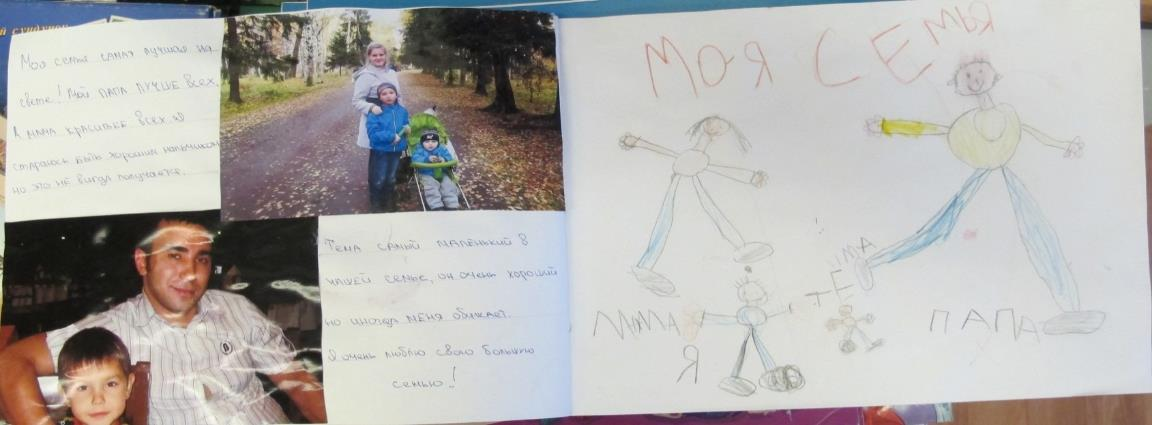 Моя семья самая лучшая на
свете! Мой ПАПА ЛУЧШЕ Всех,
А МАМА КРАСИВЕЕ Всех. Я
стараюсь быть хорошим мальчиком
но это не всегда получается.
Тема самый маленький в
нашей семье, он очень хороший
но иногда меня обижает.
Я очень люблю свою большую
семью!
МОЯ СЕМЬЯ
ТЁМА
МАМА
Я
ПАПА